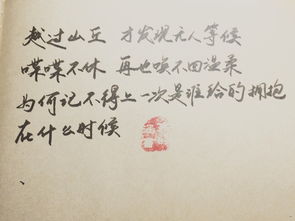 越过山丘 才发现无人等候
喋喋不休 再也唤不回温柔
为何记不得上一次是谁给的拥抱
在什么时候
、